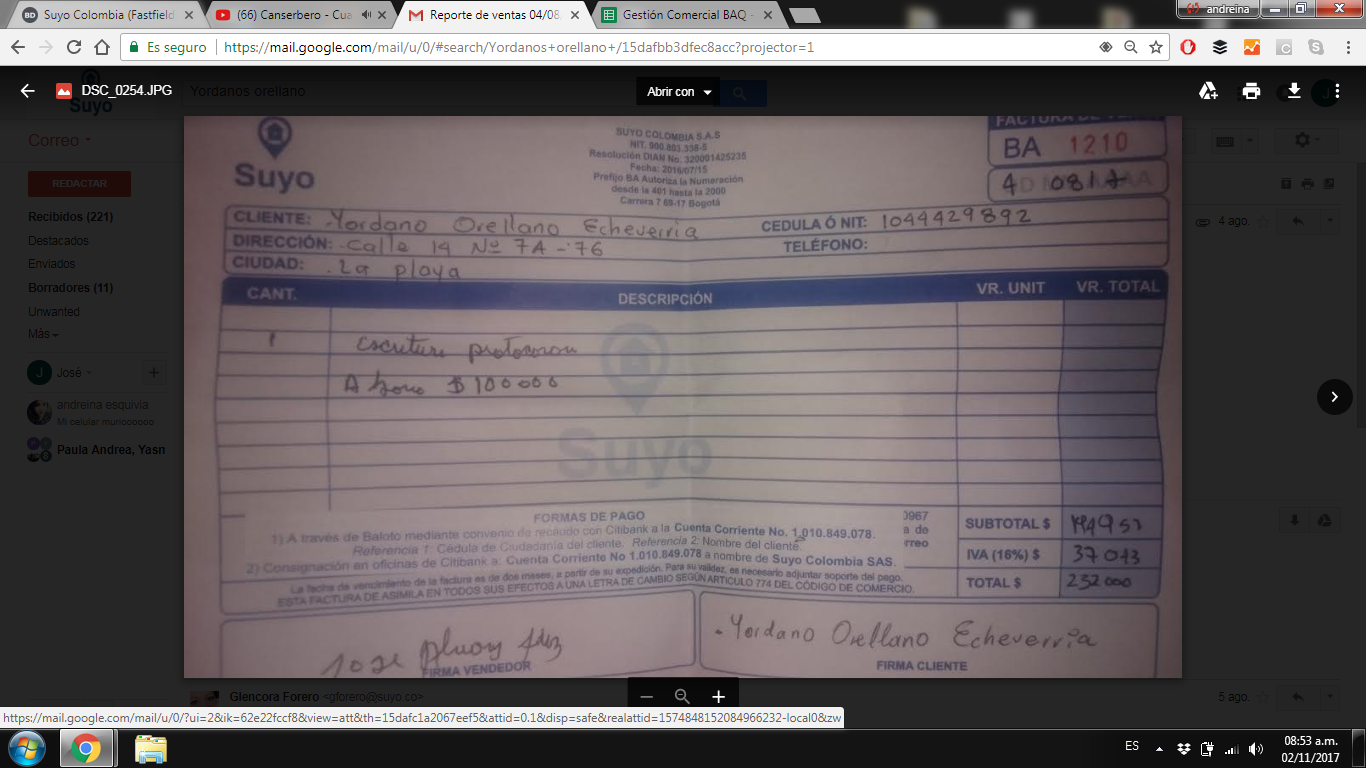 Suyo Colombia (Fastfield
(66) Canserbero - Cua
Reporte de ventas 04/08
Gestión Comercial BAQ -
andreina
Es seguro
https://mail.google.com/mail/u/0/#search/Yordanos+orellano+/15dafbb3dfec8acc?projector=1
DSC_0254.JPG
Yordanos orellano
Abrir con
Suyo
Correo
REDACTAR
Recibidos (221)
Destacados
Enviados
Borradores (11)
Unwanted
Más
José
andreina esquivia
Mi celular murioooooo
Paula Andrea, Yasn
4 ago.
Suyo
SUYO COLOMBIA S.A.S
NIT. 900.803.338-5
Resolución DIAN No. 320001425235
Fecha: 2016/07/15
Prefijo BA Autoriza la Numeración
desde la 401 hasta la 2000
Carrera 7 69-17 Bogotá
FACTURA DE
BA 1210
4 08 17
CLIENTE: Yordano Orellano Echeverria CEDULA Ó NIT: 1044429892
DIRECCIÓN: Calle 14 Nº 7A - 76 TELÉFONO:
CIUDAD: La playa
CANT. DESCRIPCIÓN VR. UNIT VR. TOTAL
1 Escritura
Abono $ 100000
Suyo
FORMAS DE PAGO
1) A través de Baloto mediante convenio de recaudo con Citibank a la Cuenta Corriente No. 1.010.849.078.
Referencia 1: Cédula de Ciudadanía del cliente. Referencia 2: Nombre del cliente.
2) Consignación en oficinas de Citibank a: Cuenta Corriente No 1.010.849.078 a nombre de Suyo Colombia SAS.
La fecha de vencimiento de la factura es de dos meses, a partir de su expedición. Para su validez, es necesario adjuntar soporte del pago.
ESTA FACTURA DE ASÍMILA EN TODOS SUS EFECTOS A UNA LETRA DE CAMBIO SEGÚN ARTICULO 774 DEL CÓDIGO DE COMERCIO.
0967
a de
rreo
SUBTOTAL $
IVA (16%) $ 37 043
TOTAL $ 232 000
Jose
FIRMA VENDEDOR
Yordano Orellano Echeverria
FIRMA CLIENTE
Glencora Forero <gforero@suyo.co>
5 ago.
https://mail.google.com/mail/u/0/?ui=2&ik=62e22fccf8&view=att&th=15dafc1a2067eef5&attid=0.1&disp=safe&realattid=1574848152084966232-local0&zw
ES
08:53 a.m.
02/11/2017